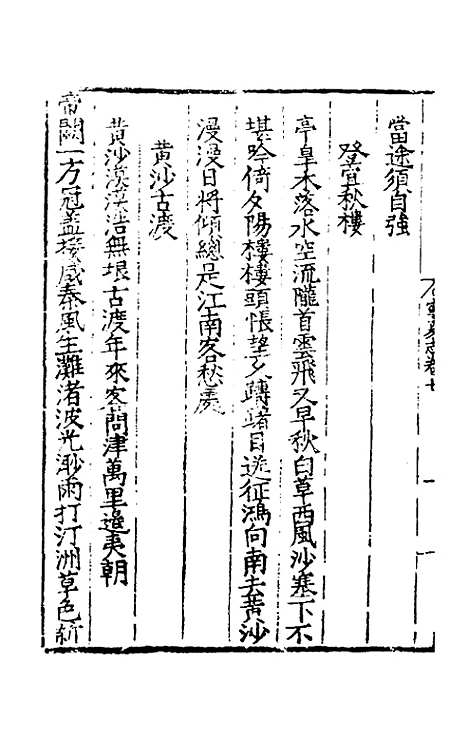 當途須自強
登宜秋樓
亭皐木落水空流隴首雲飛又早秋白草西風沙塞下不
堪吟倚夕陽樓樓頭悵望久踌躇目送征鴻向南去黄沙
漫漫日將傾總是江南客愁處
黄沙古渡
黄沙漠漠浩無垠古渡年來客問津萬里邊夷朝
帝闕一方冠盖接咸秦風生灘渚波光渺雨打汀洲草色新
寧夏志卷